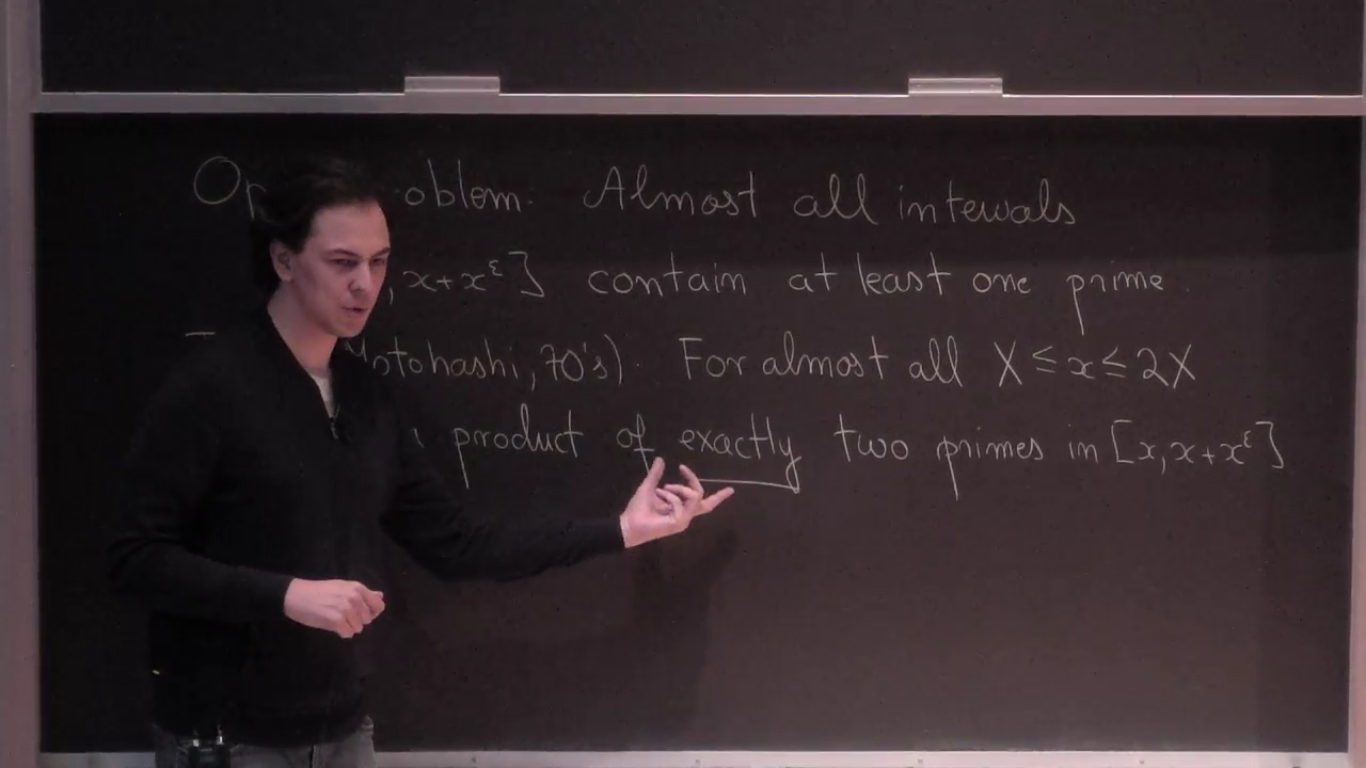 Op oblem. Almost all intervals
, x+x^ε] contain at least one prime.
otohashi, 70's). For almost all X ≤ x ≤ 2X
product of exactly two primes in [x, x+x^ε]